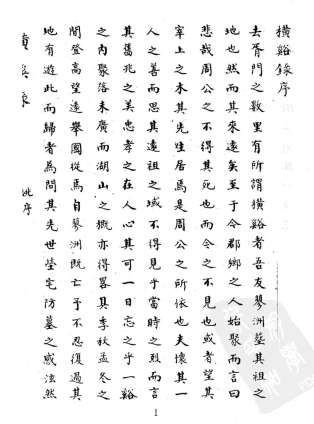 橫谿錄序
去胥門之數里有所謂橫谿者吾友蓼洲塟其祖之
地也然而其來遠矣至于今郡鄉之人始聚而言曰
悲哉周公之不得其死也而今之不見也或者望其
宰上之木其先生居焉是周公之所依也夫壞其一
人之善而思其遠祖之域不得見乎當時之烈而言
其舊兆之美忠孝之在人心其可一日忘之乎一谿
之內聚落未廣而湖山之概亦得畧具季秋孟冬之
間登高望遠舉國從焉自蓼洲既亡予不忍復過其
地有遊此而歸者為問其先世塋宅防墓之感泫然
姚序
1